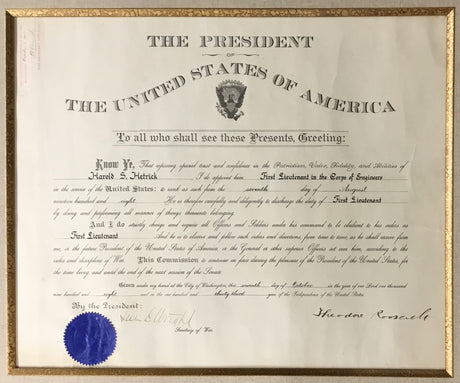 THE PRESIDENT
OF
THE UNITED STATES OF AMERICA
To all who shall see these Presents, Greeting:
Know Ye, That reposing special trust and confidence in the Patriotism, Valor, Fidelity, and Abilities of
Harold S. Hetrick I do appoint him First Lieutenant in the Corps of Engineers
in the service of the United States: to rank as such from the seventh day of August
nineteen hundred and eight He is therefore carefully and diligently to discharge the duty of First Lieutenant
by doing and performing all manner of things thereunto belonging.
And I do strictly charge and require all Officers and Soldiers under his command to be obedient to his orders as
First Lieutenant And he is to observe and follow such orders and directions, from time to time, as he shall receive from
me, or the future President of the United States of America, or the General or other superior Officers set over him, according to the
rules and discipline of War. This Commission to continue in force during the pleasure of the President of the United States, for
the time being, and until the end of the next session of the Senate
Given under my hand at the City of Washington, this seventh day of October in the year of our Lord one thousand
nine hundred and eight and in the one hundred and thirty third year of the Independence of the United States.
By the President:
Luke E Wright
Secretary of War.
Theodore Roosevelt